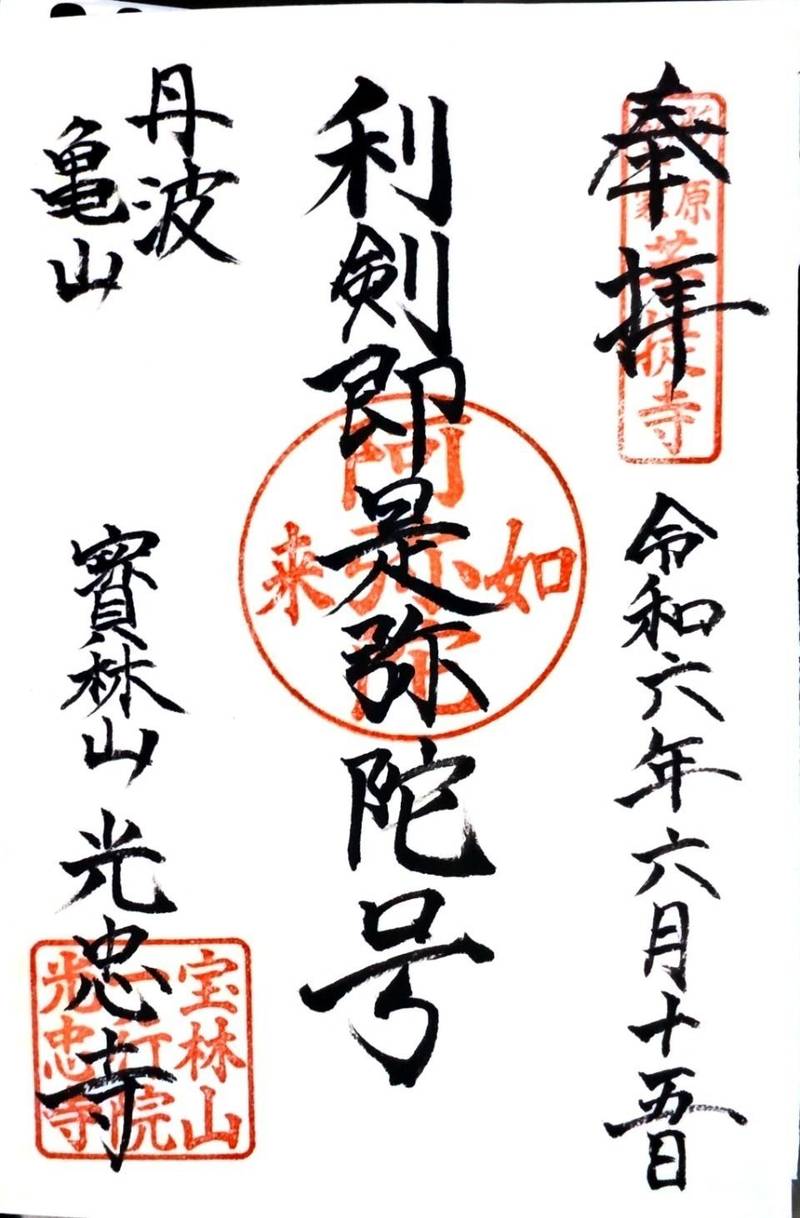 奉拝
原
菩提寺
令和六年六月十五日
利剣即是弥陀号
阿弥陀
如来
丹波
亀山
寳林山 光忠寺
宝林山
一行院
光忠寺